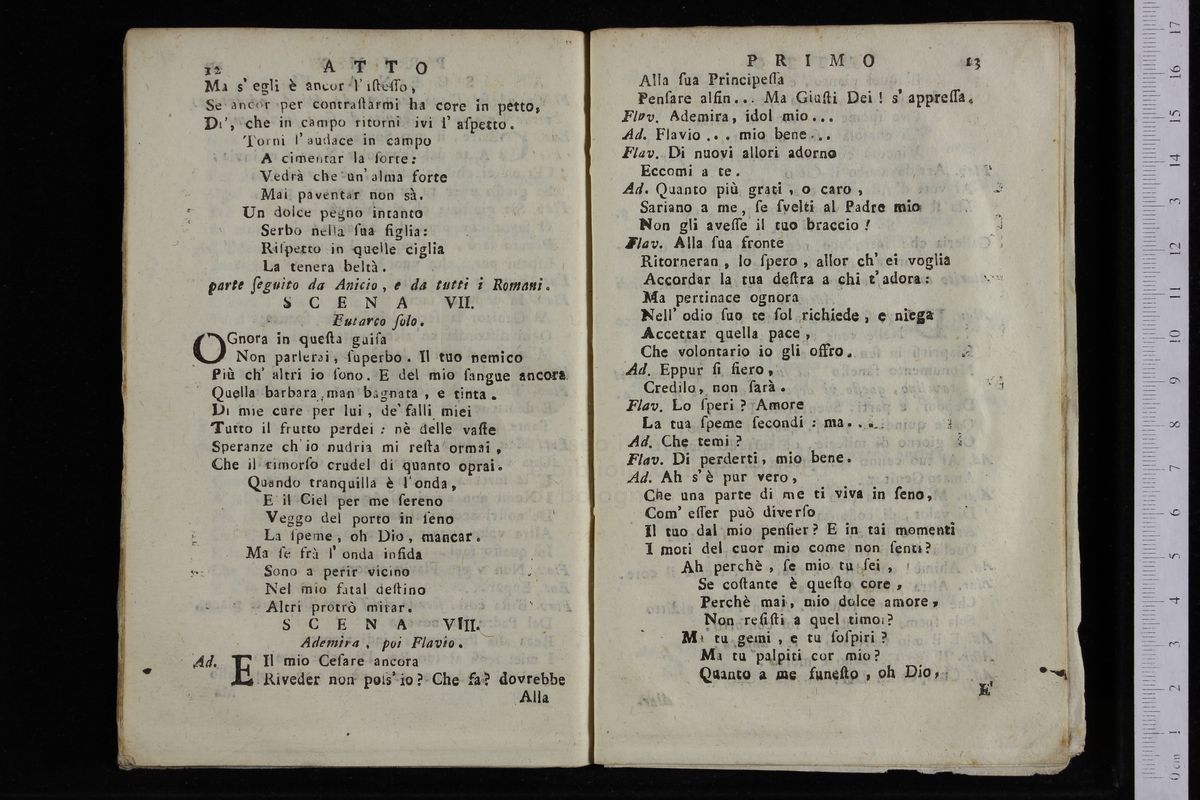 12 ATTO
Ma s' egli è ancor l' iſteſſo,
Se ancor per contraſtarmi ha core in petto,
Di', che in campo ritorni ivi l' aſpetto.
Torni l'audace in campo
A cimentar la ſorte:
Vedrà che un' alma forte
Mai paventar non sà.
Un dolce pegno intanto
Serbo nella ſua figlia:
Riſpetto in quelle ciglia
La tenera beltà.
parte ſeguito da Anicio, e da tutti i Romani.
SCENA VII.
Eutarco ſolo.
OGnora in queſta guiſa
Non parlerai, ſuperbo. Il tuo nemico
Più ch' altri io ſono. E del mio ſangue ancora
Quella barbara man bagnata, e tinta.
Di mie cure per lui, de' falli miei
Tutto il frutto perdei: nè delle vaſte
Speranze ch' io nudria mi reſta ormai,
Che il rimorſo crudel di quanto oprai.
Quando tranquilla è l'onda,
E il Ciel per me ſereno
Veggo del porto in ſeno
La ſpeme, oh Dio, mancar.
Ma ſe frà l' onda infida
Sono a perir vicino
Nel mio fatal deſtino
Altri protrò mirar.
SCENA VIII.
Ademira, poi Flavio.
Ad. E Il mio Ceſare ancora
Riveder non pois' io? Che fa? dovrebbe
Alla
PRIMO 13
Alla ſua Principeſſa
Penſare alfin... Ma Giuſti Dei! s' appreſſa.
Flav. Ademira, idol mio...
Ad. Flavio... mio bene...
Flav. Di nuovi allori adorno
Eccomi a te.
Ad. Quanto più grati, o caro,
Sariano a me, ſe ſvelti al Padre mio
Non gli aveſſe il tuo braccio!
Flav. Alla ſua fronte
Ritorneran, lo ſpero, allor ch' ei voglia
Accordar la tua deſtra a chi t'adora:
Ma pertinace ognora
Nell' odio ſuo te ſol richiede, e niega
Accettar quella pace,
Che volontario io gli offro.
Ad. Eppur ſi fiero,
Credilo, non ſarà.
Flav. Lo ſperi? Amore
La tua ſpeme ſecondi: ma....
Ad. Che temi?
Flav. Di perderti, mio bene.
Ad. Ah s'è pur vero,
Che una parte di me ti viva in ſeno,
Com' eſſer può diverſo
Il tuo dal mio penſier? E in tai momenti
I moti del cuor mio come non ſenti?
Ah perchè, ſe mio tu ſei,
Se coſtante è queſto core,
Perchè mai, mio dolce amore,
Non reſiſti a quel timor?
Ma tu gemi, e tu ſoſpiri?
Ma tu palpiti cor mio?
Quanto a me funeſto, oh Dio,
E'